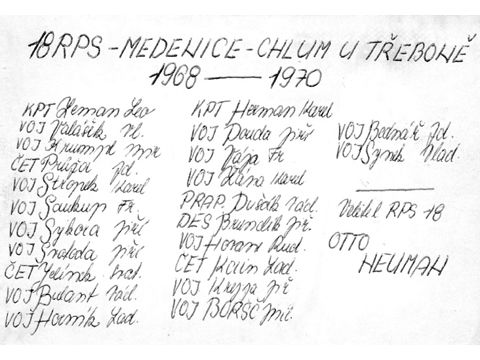 18RPS - MEDENICE - CHLUM U TŘEBONĚ
1968 — 1970
KPT Heman Leo
VOJ Valášik Vl.
VOJ Krumpl
ČET Průša Zd.
VOJ Stropek Karel
VOJ Soukup Fr.
VOJ Sykora Jiří
VOJ Svoboda Jiří
ČET Jelínek
VOJ Butant Václ.
VOJ Horník Lad.
KPT Herman Karel
VOJ Douda Jiří
VOJ Vája Fr.
VOJ Kára Karel
PRAP. Dušek Václ.
DES Brundlík Jir.
VOJ Horant Rud.
ČET Kain Lad.
VOJ Krejza Jiř
VOJ BORŠČ Mil.
VOJ Bednář Zd.
VOJ Synek Vlad.
Velitel RPS 18
OTTO
HEUMAN